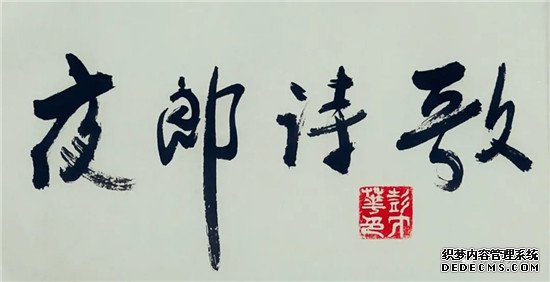 夜郎诗歌
彭
華
织梦内容管理系统
DEDECMS.COM